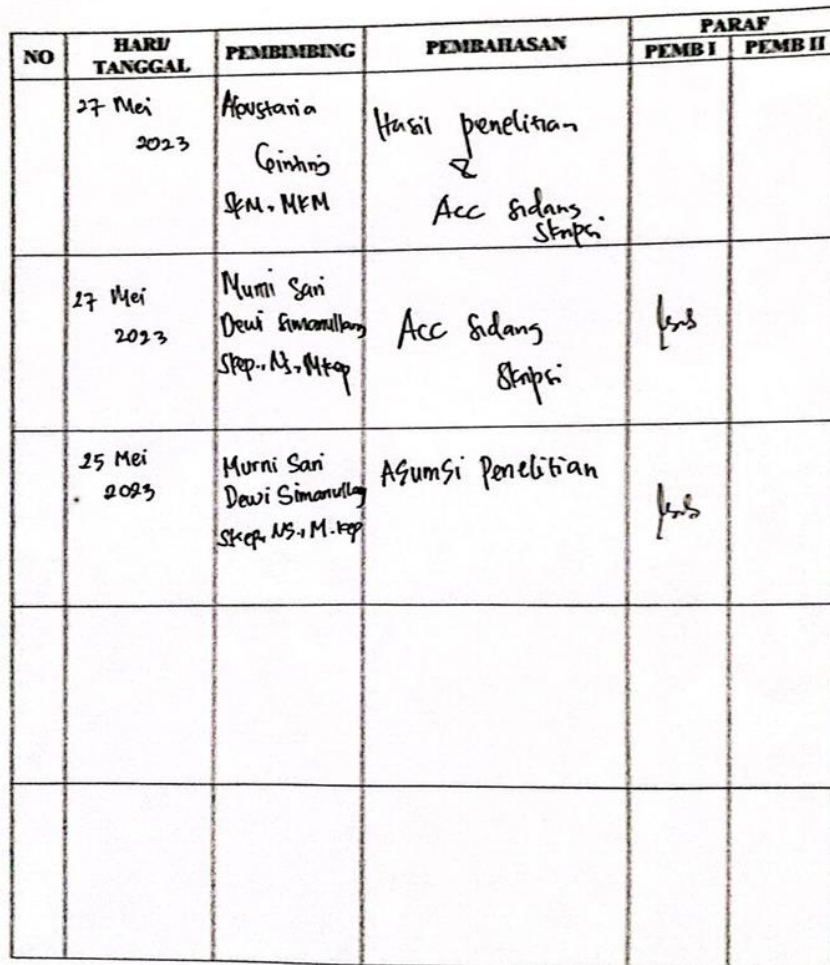 NO HARI/ TANGGAL PEMBIMBING PEMBAHASAN PARAF
PEMB I PEMB II
27 Mei
2023
Ginting
SKM, MKM
Hasil penelitian
&
Acc sidang
Skripsi
27 Mei
2023
Murni Sari
Dewi Simanullang
Skep., Ns., Mkep
Acc sidang
Skripsi
25 Mei
2023
Murni Sari
Dewi Simanullang
Skep, NS., M.kep
ASumSi Penelitian